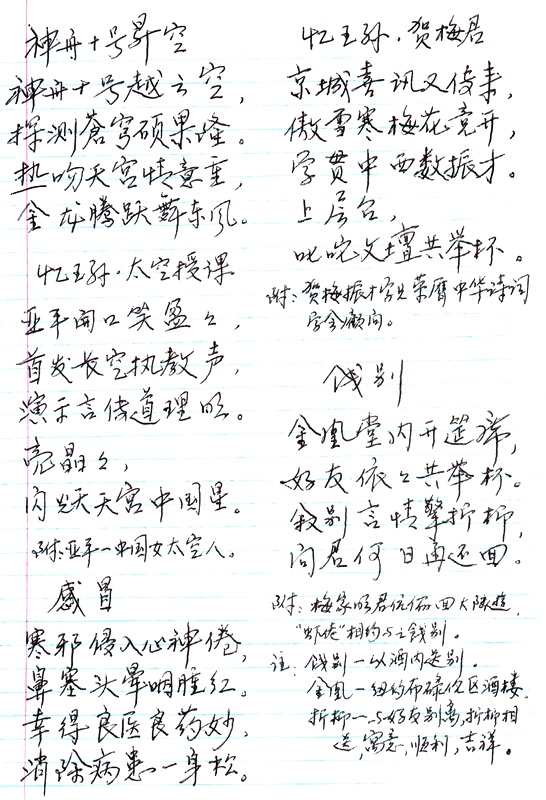 神舟十号昇空
神舟十号越云空，
探测蒼穹硕果隆。
热吻天宫情意重，
金龙腾跃舞东风。
忆王孙·太空授课
亚平開口笑盈々，
首发长空执教声，
演示言傳道理明。
亮晶々，
闪烁天宫中国星。
附:亚平一中国女太空人。
感冒
寒邪侵入心神倦，
鼻塞头晕咽腫红。
幸得良医良药妙，
消除病患一身松。
忆王孙·贺梅君
京城喜讯又傳来，
傲雪寒梅花竞开，
学贯中西数振才。
上层台，
叱咤文壇共举杯。
附：贺梅振才吟兄荣膺中华诗词
学会顧问。
饯别
金凰堂内开筵席，
好友依々共举杯。
敘别言情擎折柳，
问君何日再还回。
附：梅家明君伉俪回大陸遊，
"虾佬"相约与之饯别。
注：饯别一以酒肉送别。
金凰一纽约布碌伦区酒楼.
折柳一与好友别离,折柳相
送,寓意,顺利,吉祥。